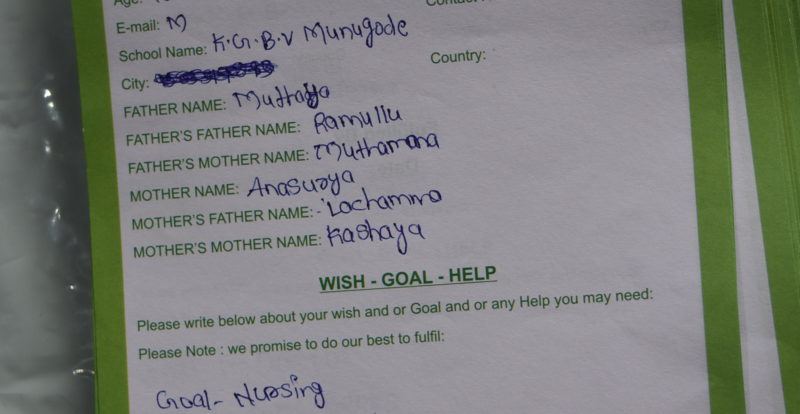 Age:
E-mail: M
School Name: K.G.B.V Munugode
City:
Country:
FATHER NAME: Muttayya
FATHER'S FATHER NAME: Ramullu
FATHER'S MOTHER NAME: Muthamana
MOTHER NAME: Anasurya
MOTHER'S FATHER NAME:- Lachamma
MOTHER'S MOTHER NAME: Kashaya
WISH - GOAL - HELP
Please write below about your wish and or Goal and or any Help you may need:
Please Note : we promise to do our best to fulfil:
Goal- Nursing